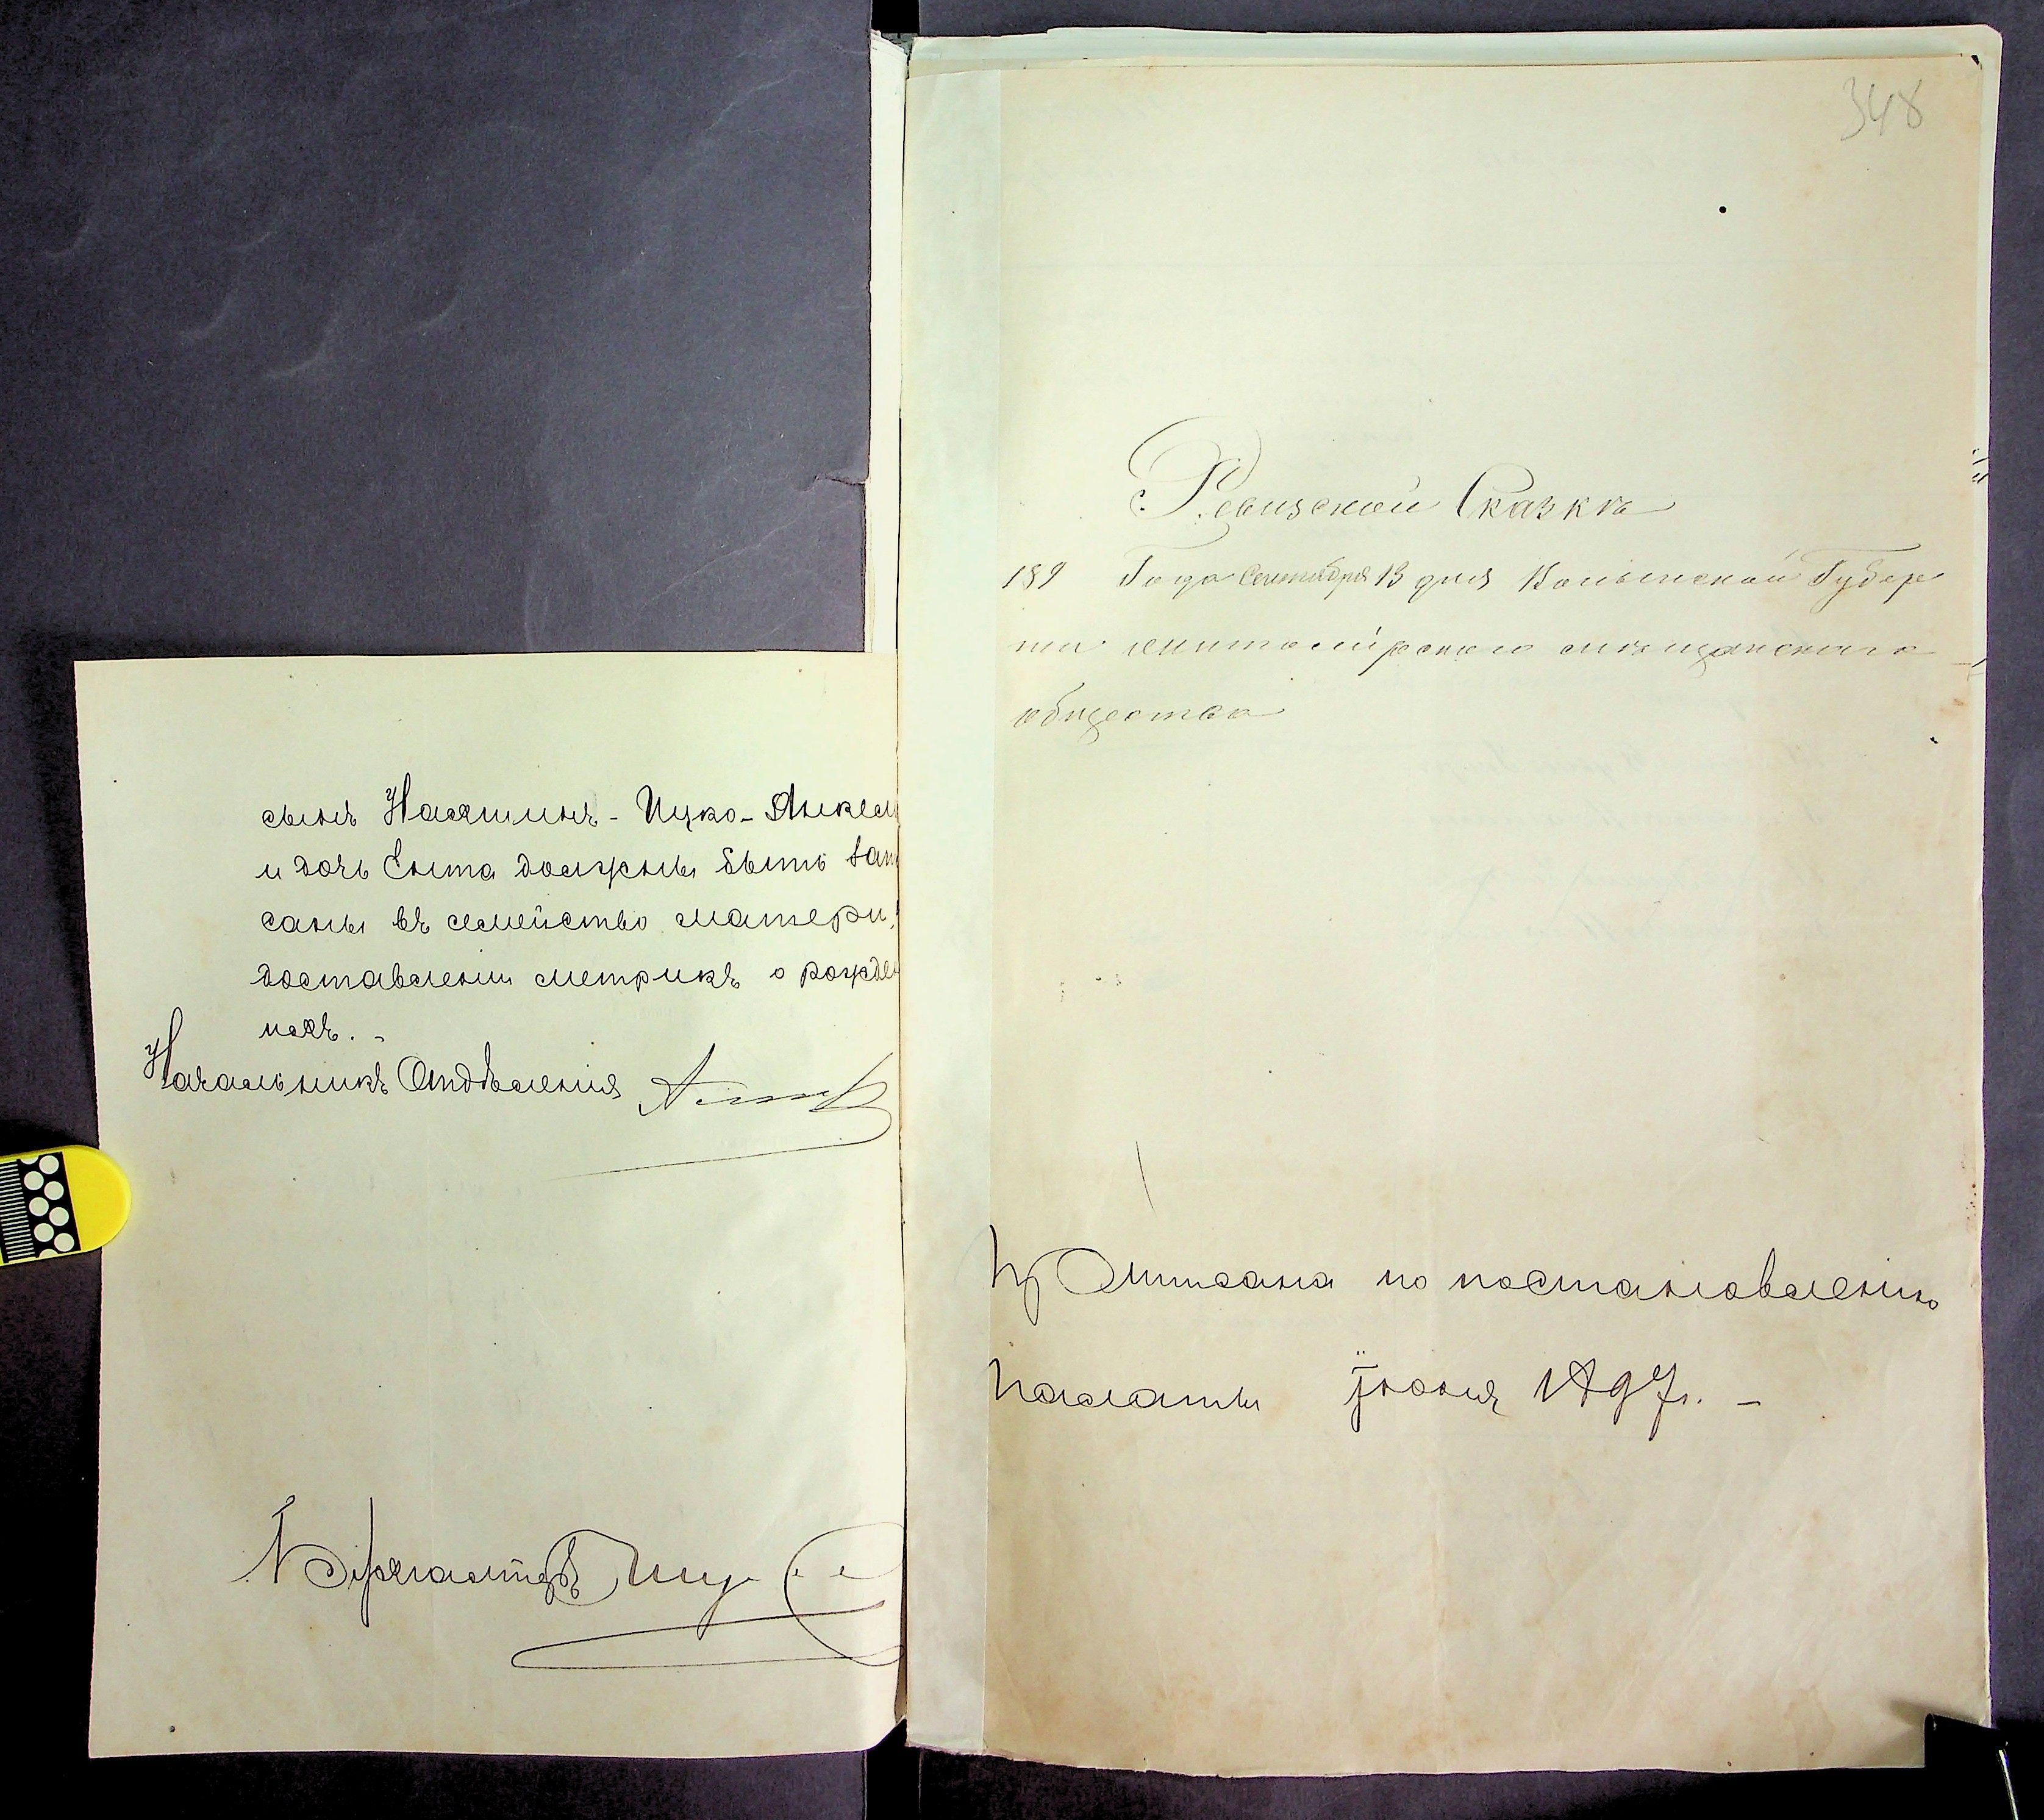 сынъ Нахманъ-Ицко-Анкел
и дочь Ента должны быть зап
саны въ семейство матери,
доставленіи метрикъ о рожде
ихъ.-
Начальникъ Отдѣленія
Бухгалтеръ
348
Ревизской Сказкѣ
189 Года Сентября 13 дня Волынской Губер
ніи житомірскаго мѣщанскаго
общества
по постановленію
палаты Іюня 1897г.-